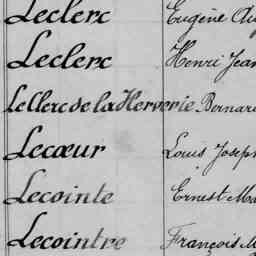 Leclerc Eugène
Leclerc Henri Jean
Leclerc de la Herverie Bernard
Lecœur Louis Joseph
Lecointe Ernest
Lecointre François